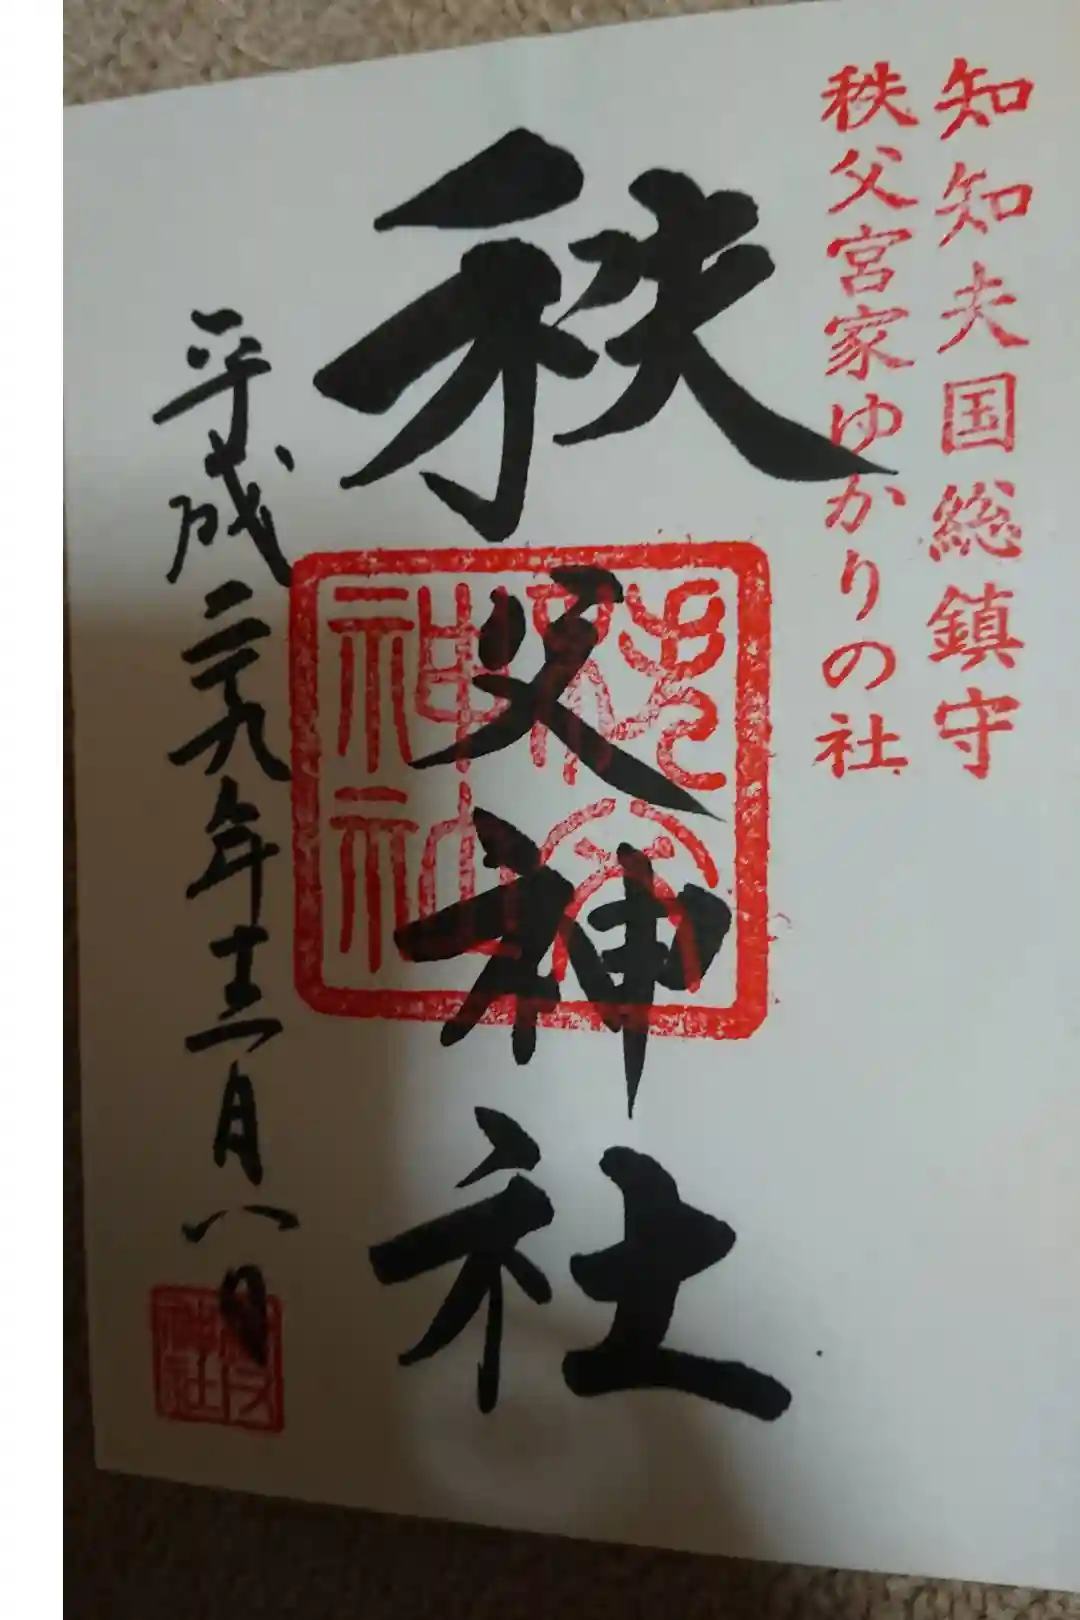 知知夫国総鎮守
秩父宮家ゆかりの社
秩父神社
秩父神社
平成二十九年十二月八日
秩父神社